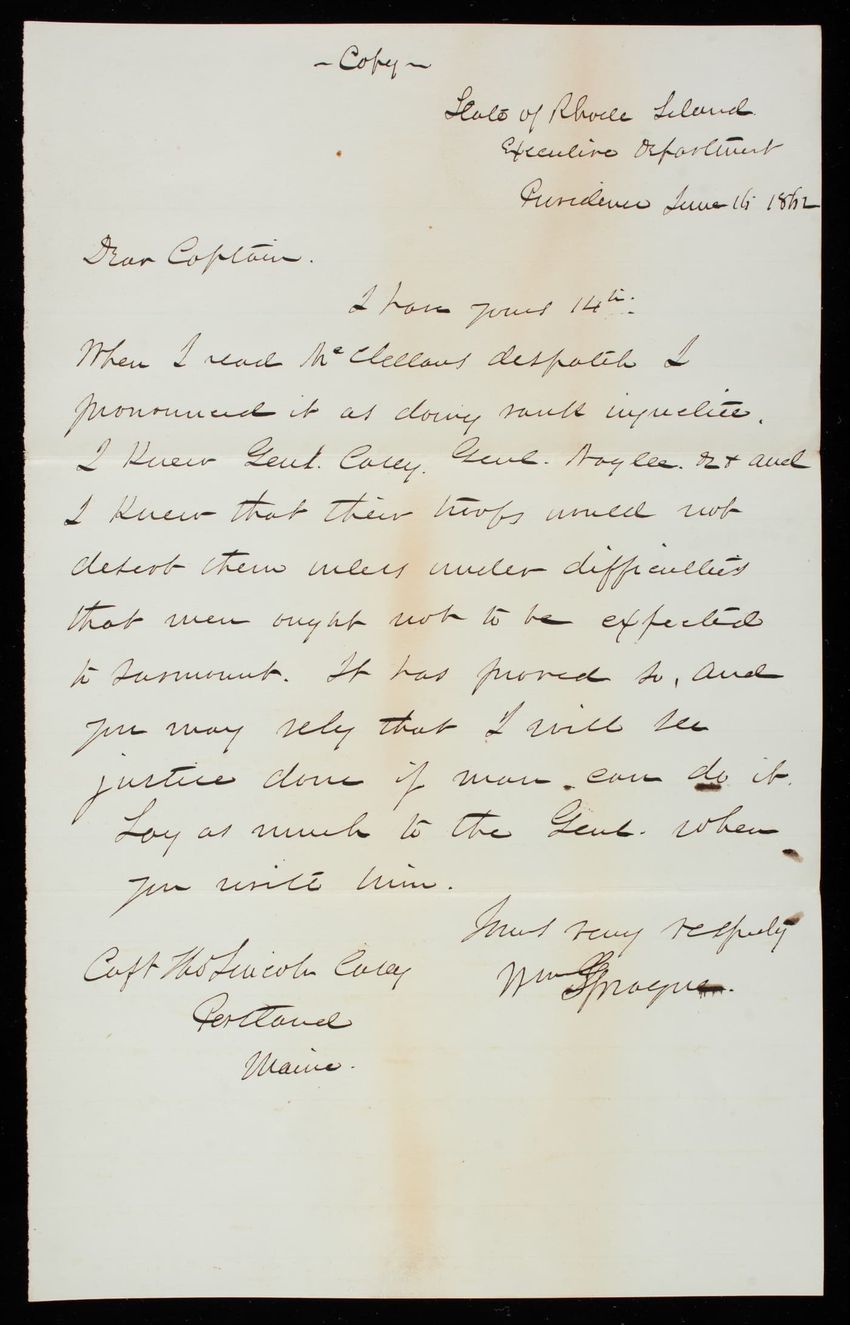 - Copy -
State of Rhode Island
Executive Department
Providence June 16 1862
Dear Captain.
I have yours 14th.
When I read McClellans despatch I
pronounced it as doing rank injustice.
I knew Genl. Casey. Genl. Naglee. &c and
I knew that their troops would not
desert them unless under difficulties
that men ought not to be expected
to surmount. It has proved so, and
you may rely that I will see
justice done if man can do it.
Say as much to the Genl. when
you write him.
Yours very respectly
Wm Sprague.
Capt Tho Lincoln Casey
Portland
Maine.